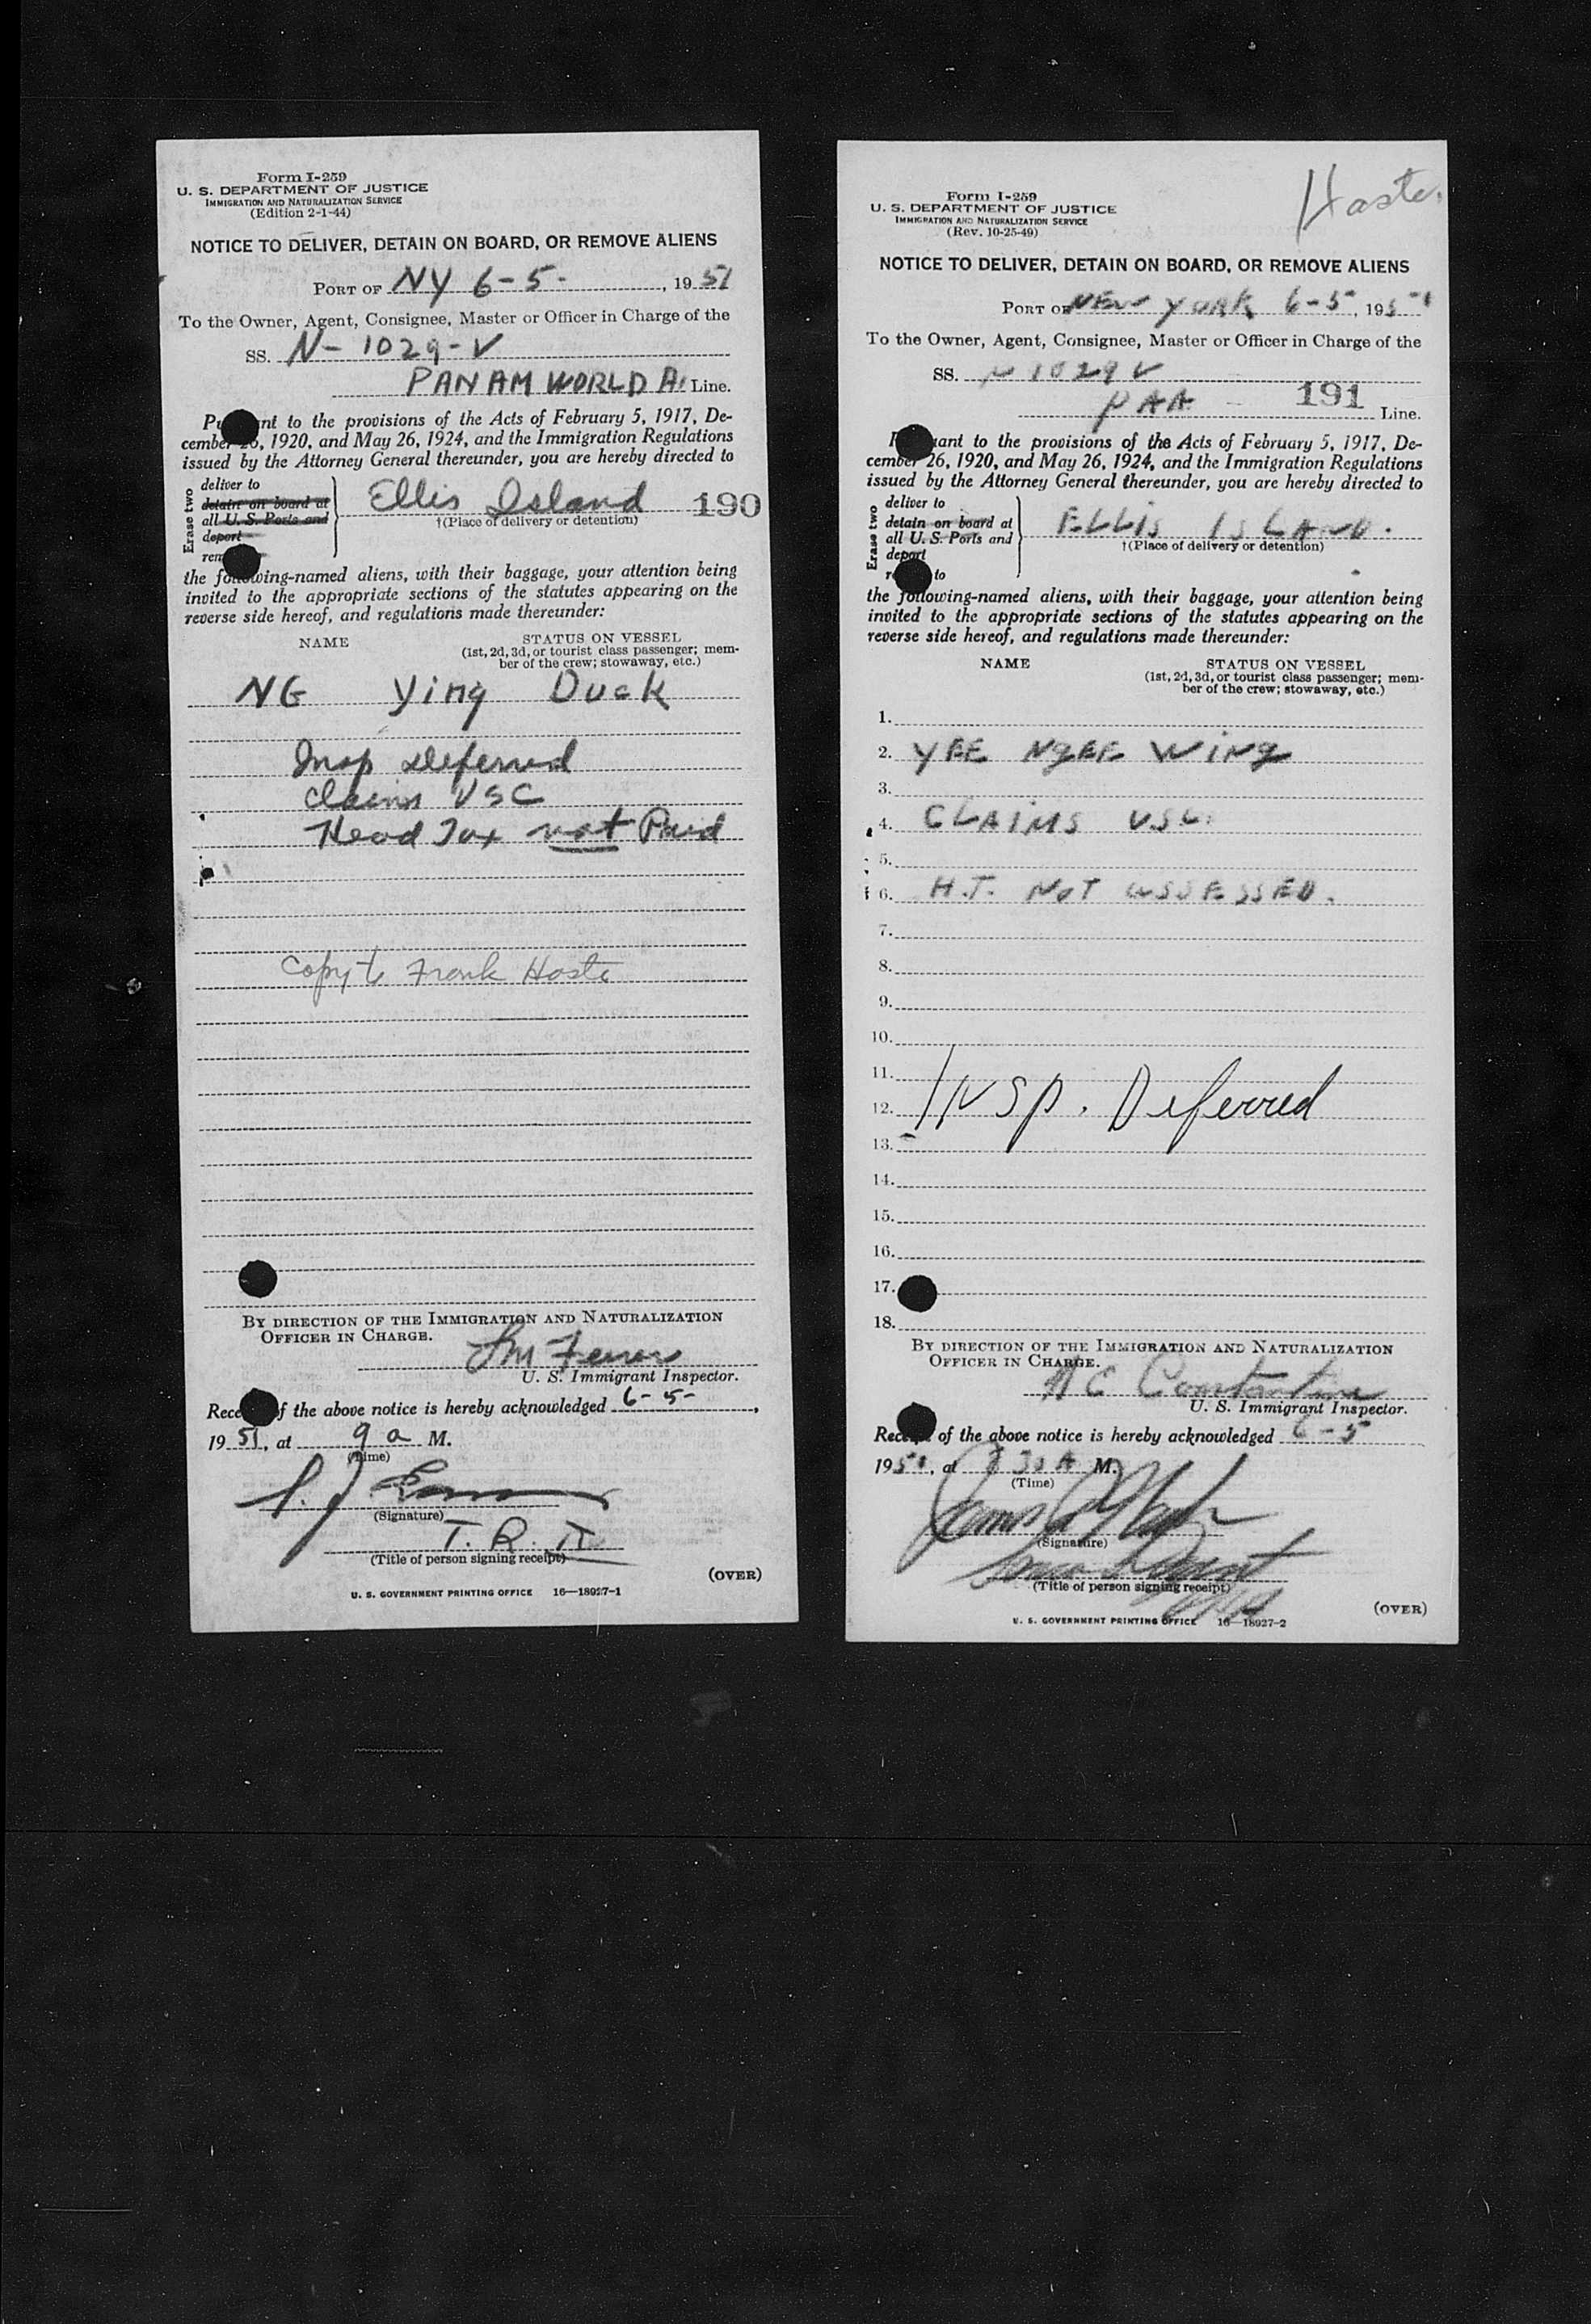 Form I-259
U. S. DEPARTMENT OF JUSTICE
IMMIGRATION AND NATURALIZATION SERVICE
(Edition 2-1-44)
NOTICE TO DELIVER, DETAIN ON BOARD, OR REMOVE ALIENS
PORT OF NY 6-5-, 1951
To the Owner, Agent, Consignee, Master or Officer in Charge of the
SS. N-1029-V
PAN AM WORLD A. Line.
nt to the provisions of the Acts of February 5, 1917, De-
cember 26, 1920, and May 26, 1924, and the Immigration Regulations
issued by the Attorney General thereunder, you are hereby directed to
Erase two
deliver to
detain on board at
all U. S. Ports and
deport
Ellis Island 190
†(Place of delivery or detention)
the following-named aliens, with their baggage, your attention being
invited to the appropriate sections of the statutes appearing on the
reverse side hereof, and regulations made thereunder:
NAME STATUS ON VESSEL
(1st, 2d, 3d, or tourist class passenger; mem-
ber of the crew; stowaway, etc.)
NG Ying Duck
Insp Deferred
Claims USC
Head Tax not Paid
Copy to Frank Haste
BY DIRECTION OF THE IMMIGRATION AND NATURALIZATION
OFFICER IN CHARGE.
U. S. Immigrant Inspector.
of the above notice is hereby acknowledged 6-5-,
1951, at 9 a M.
(Time)
(Signature)
(Title of person signing receipt)
(OVER)
U. S. GOVERNMENT PRINTING OFFICE 16—18927-1
Haste.
Form I-259
U. S. DEPARTMENT OF JUSTICE
IMMIGRATION AND NATURALIZATION SERVICE
(Rev. 10-25-49)
NOTICE TO DELIVER, DETAIN ON BOARD, OR REMOVE ALIENS
PORT OF NEW YORK 6-5, 1951
To the Owner, Agent, Consignee, Master or Officer in Charge of the
SS. N 1029 V
PAA 191 Line.
uant to the provisions of the Acts of February 5, 1917, De-
cember 26, 1920, and May 26, 1924, and the Immigration Regulations
issued by the Attorney General thereunder, you are hereby directed to
Erase two
deliver to
detain on board at
all U. S. Ports and
deport
to
ELLIS ISLAND.
†(Place of delivery or detention)
the following-named aliens, with their baggage, your attention being
invited to the appropriate sections of the statutes appearing on the
reverse side hereof, and regulations made thereunder:
NAME STATUS ON VESSEL
(1st, 2d, 3d, or tourist class passenger; mem-
ber of the crew; stowaway, etc.)
1.
2. YEE NGEE WING
3.
4. CLAIMS U.S.C.
5.
6. H.T. NOT ASSESSED.
7.
8.
9.
10.
11.
12. INSP. Deferred
13.
14.
15.
16.
17.
18.
BY DIRECTION OF THE IMMIGRATION AND NATURALIZATION
OFFICER IN CHARGE.
U. S. Immigrant Inspector.
of the above notice is hereby acknowledged 6-5
1951, at 30 A M.
(Time)
(Signature)
(Title of person signing receipt)
U. S. GOVERNMENT PRINTING OFFICE 16—18927-2
(OVER)